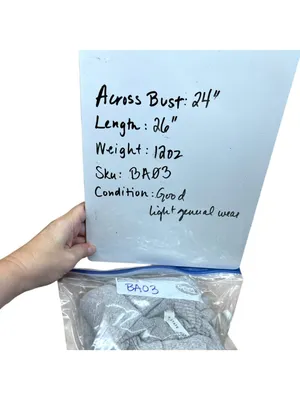 Across Bust: 24"
Length: 26"
Weight: 12oz
Sku: BA03
Condition: Good
light general wear
BA03